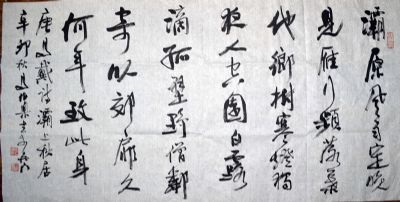 灞原風雨定晚
見雁行頻落葉
他鄉樹寒燈獨
夜人空園白露
滴孤壁野僧鄰
寄卧郊扉久
何年致此身
唐馬戴詩灞上秋居
辛卯秋月